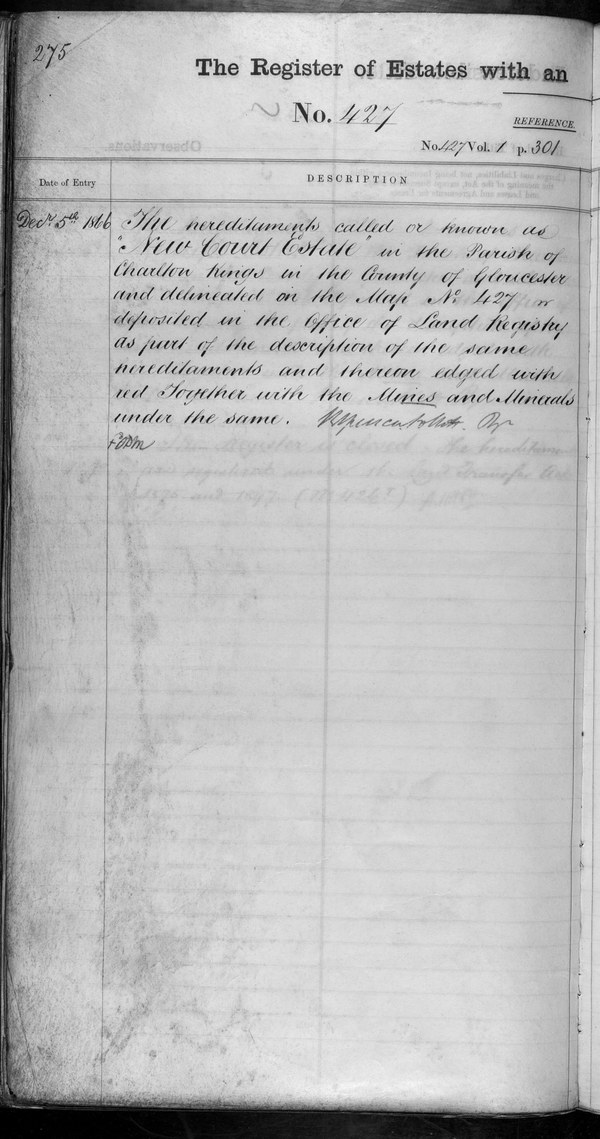 275
The Register of Estates with an
No. 427
REFERENCE.
No. 427 Vol. 1 p. 301
Observations.
Date of Entry
DESCRIPTION
Decr. 5th 1866 The hereditaments called or known as
"New Court Estate" in the Parish of
Charlton Kings in the County of Gloucester
and delineated on the Map No 427
deposited in the Office of Land Registry
as part of the description of the same
hereditaments and thereon edged with
red Together with the Mines and Minerals
under the same.
Register is closed. The hereditaments
now registered under the Land Transfer Act
1875 and 1897